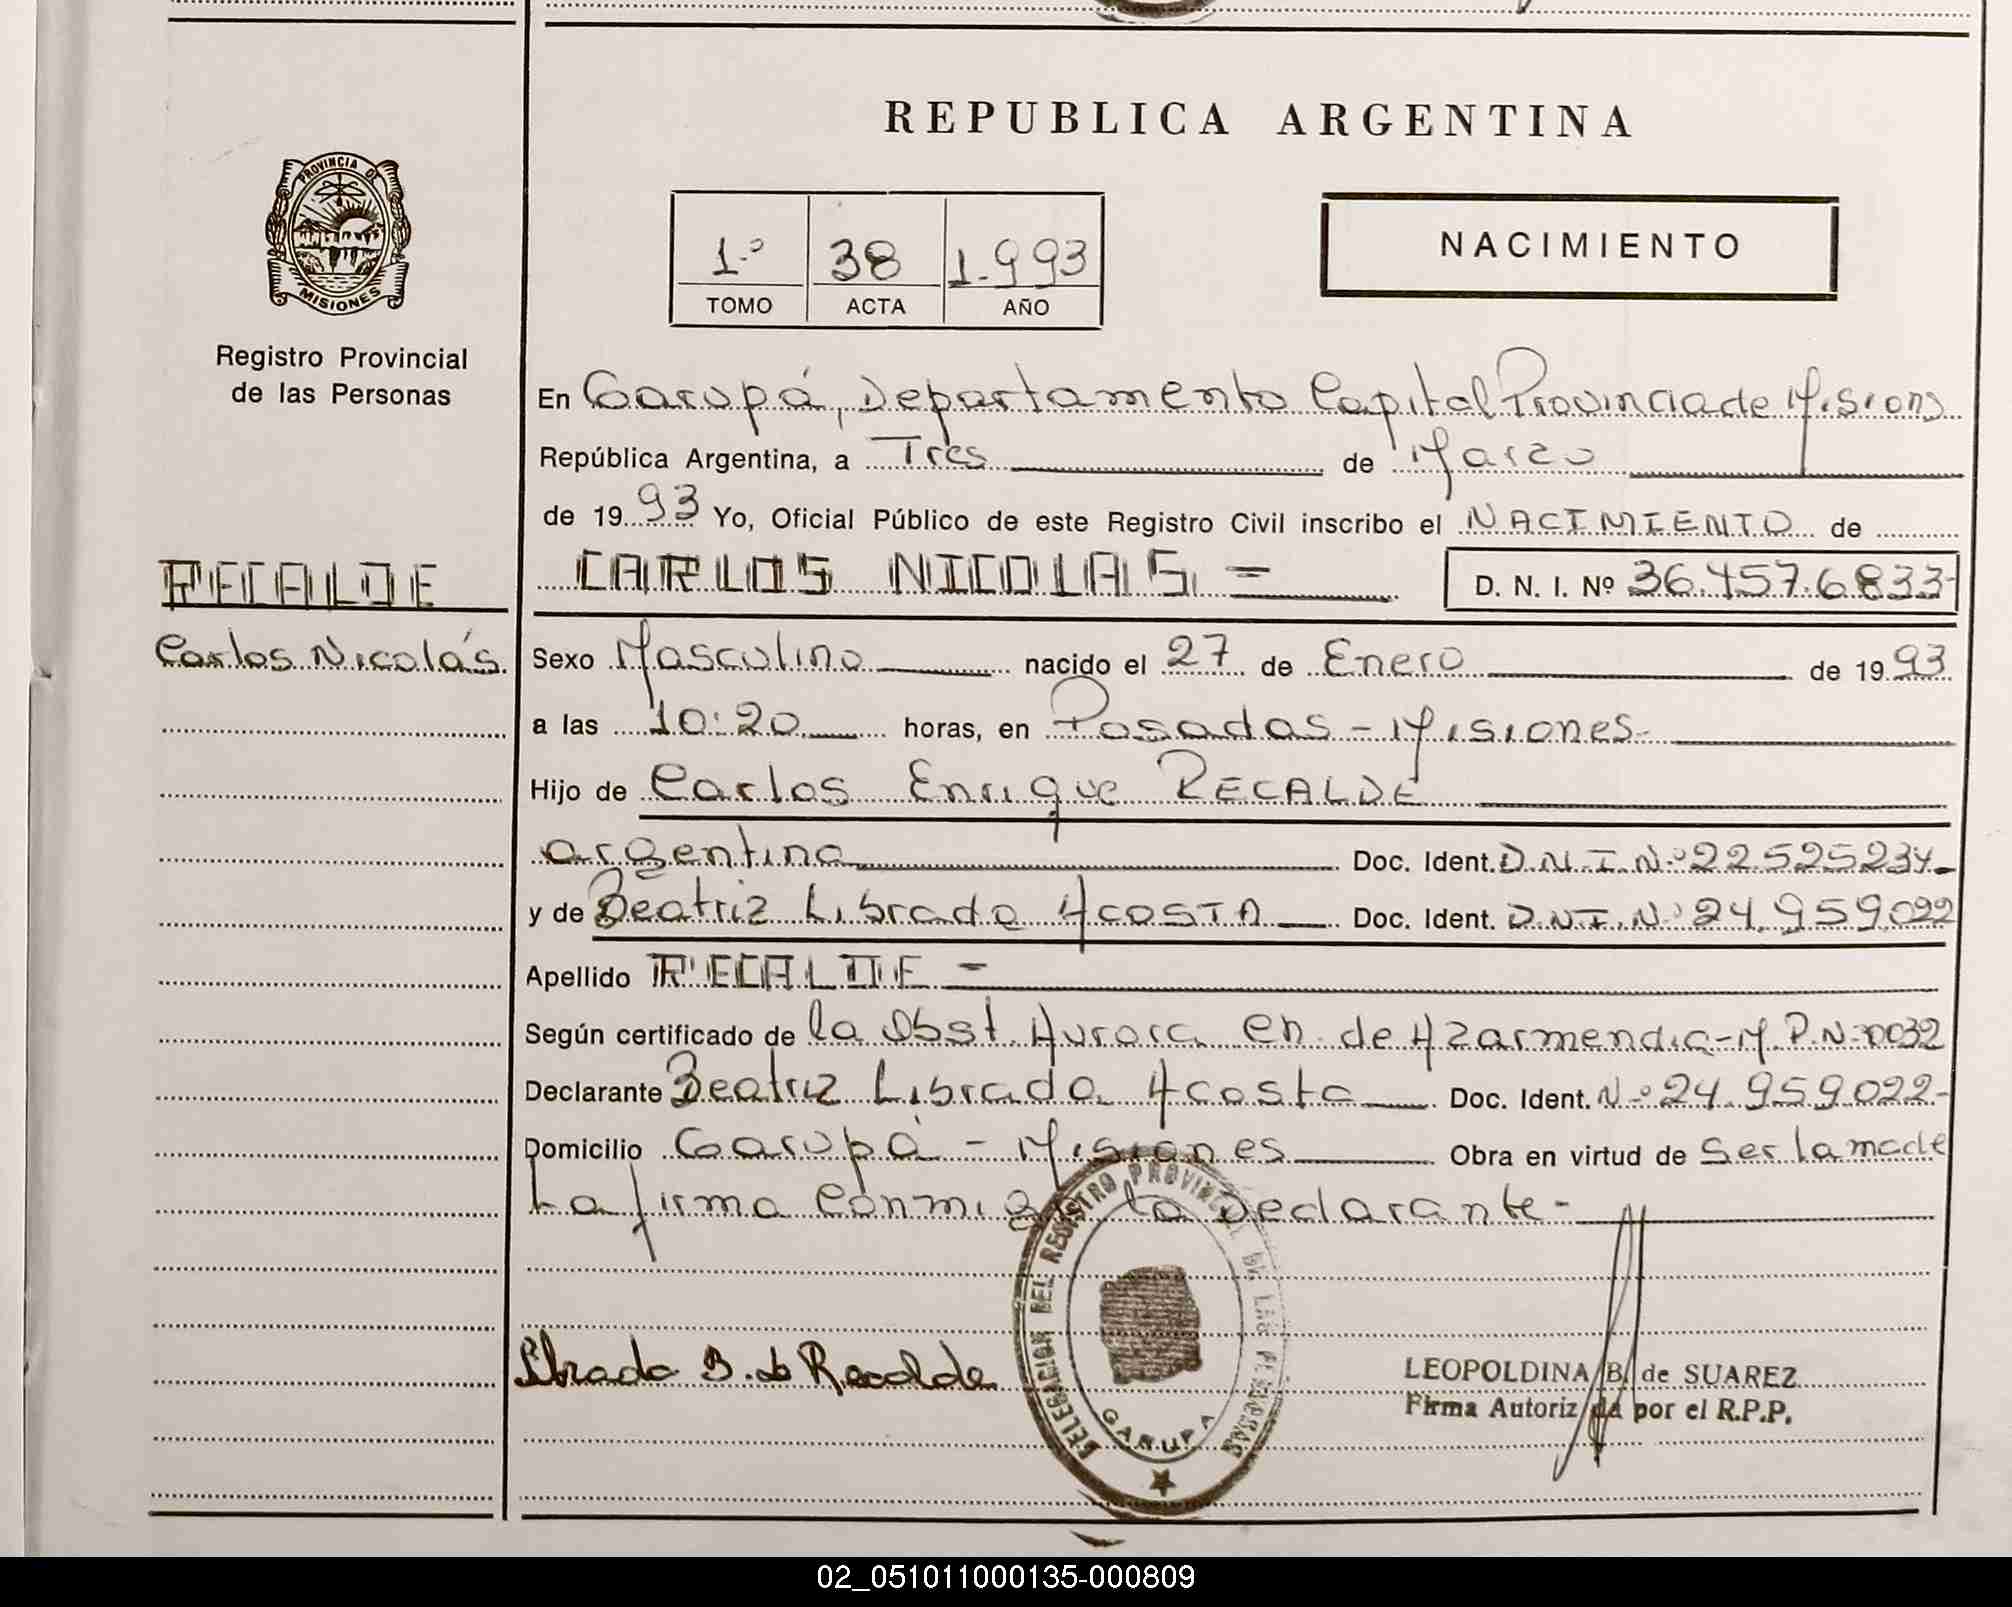 REPUBLICA ARGENTINA
PROVINCIA DE
MISIONES
Registro Provincial
de las Personas
1.º 38 1.993
TOMO ACTA AÑO
NACIMIENTO
En Garupá, Departamento Capital Provincia de Misiones
República Argentina, a Tres de Marzo
de 1993 Yo, Oficial Público de este Registro Civil inscribo el NACIMIENTO de
RECALDE
Carlos Nicolás
CARLOS NICOLAS = D. N. I. Nº 36.457.6833-
Sexo Masculino nacido el 27 de Enero de 1993
a las 10:20 horas, en Posadas - Misiones-
Hijo de Carlos Enrique RECALDE
argentino Doc. Ident. D.N.I.N.º 22.525234-
y de Beatriz Librada ACOSTA Doc. Ident. D.N.I.N.º 24.959.022
Apellido RECALDE =
Según certificado de la Obst. Aurora en. de Azarmendia-M.P.Nº0032
Declarante Beatriz Librada Acosta Doc. Ident. N.º 24.959.022-
Domicilio Garupá - Misiones Obra en virtud de Ser la madre
La firma Conmigo la Declarante-
Librada B. de Recalde
DELEGACION DEL REGISTRO PROVINCIAL DE LAS PERSONAS
GARUPA
LEOPOLDINA B. de SUAREZ
Firma Autorizada por el R.P.P.
02_051011000135-000809